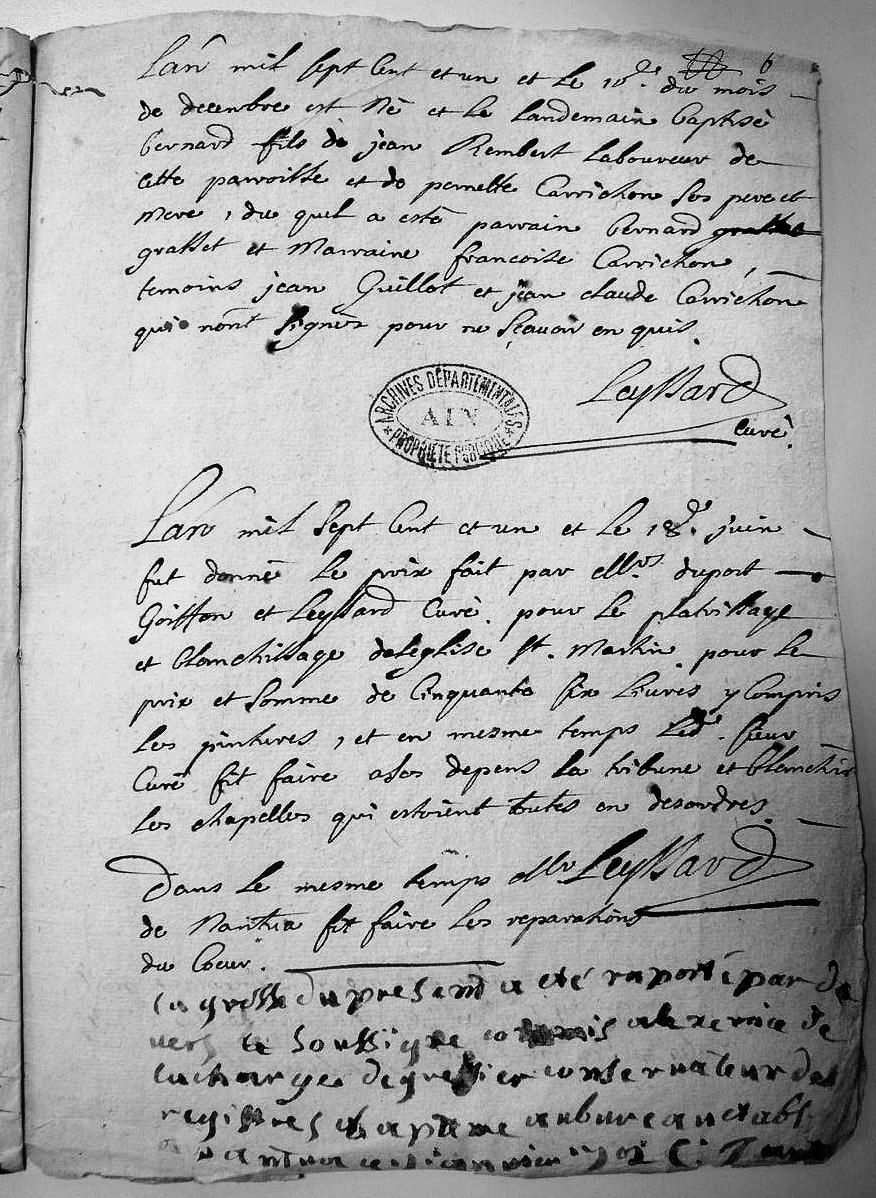 6
Lan mil sept Cent et un et le 10e. du mois
de decembre est Né et le landemain baptisé
bernard fils de jean Rembert Laboureur de
cette parroisse et de pernette Carrichon ses pere et
mere, du quel a esté parrain bernard
grasset et Marraine francoise Carrichon,
temoins jean Guillot et jean claude Carrichon
qui nont signés pour ne sçavoir enquis.
Leyssard
Curé.
ARCHIVES DÉPARTEMENTALES
AIN
PROPRIÉTÉ PUBLIQUE
Lan mil sept Cent et un et le 18e. juin
fut donné le prix fait par Mrs. duport
Goiffon et Leyssard Curé. pour le platrissage
et blanchissage deleglise St. Martin. pour le
prix et somme de Cinquante six livres y Compris
les pintures, et en mesme temps Led. sieur
Curé fit faire ases depens la tribune et blanchir
les chapelles qui estoient toutes en desordres.
Leyssard
Dans le mesme temps Mr
de Nantua fit faire les reparations
du Coeur.
la grosse du present a eté raporté par de
vers le soussigne commis alexercice de
la charge de greffier conservateur des
registres de bapteme au bureau etabl